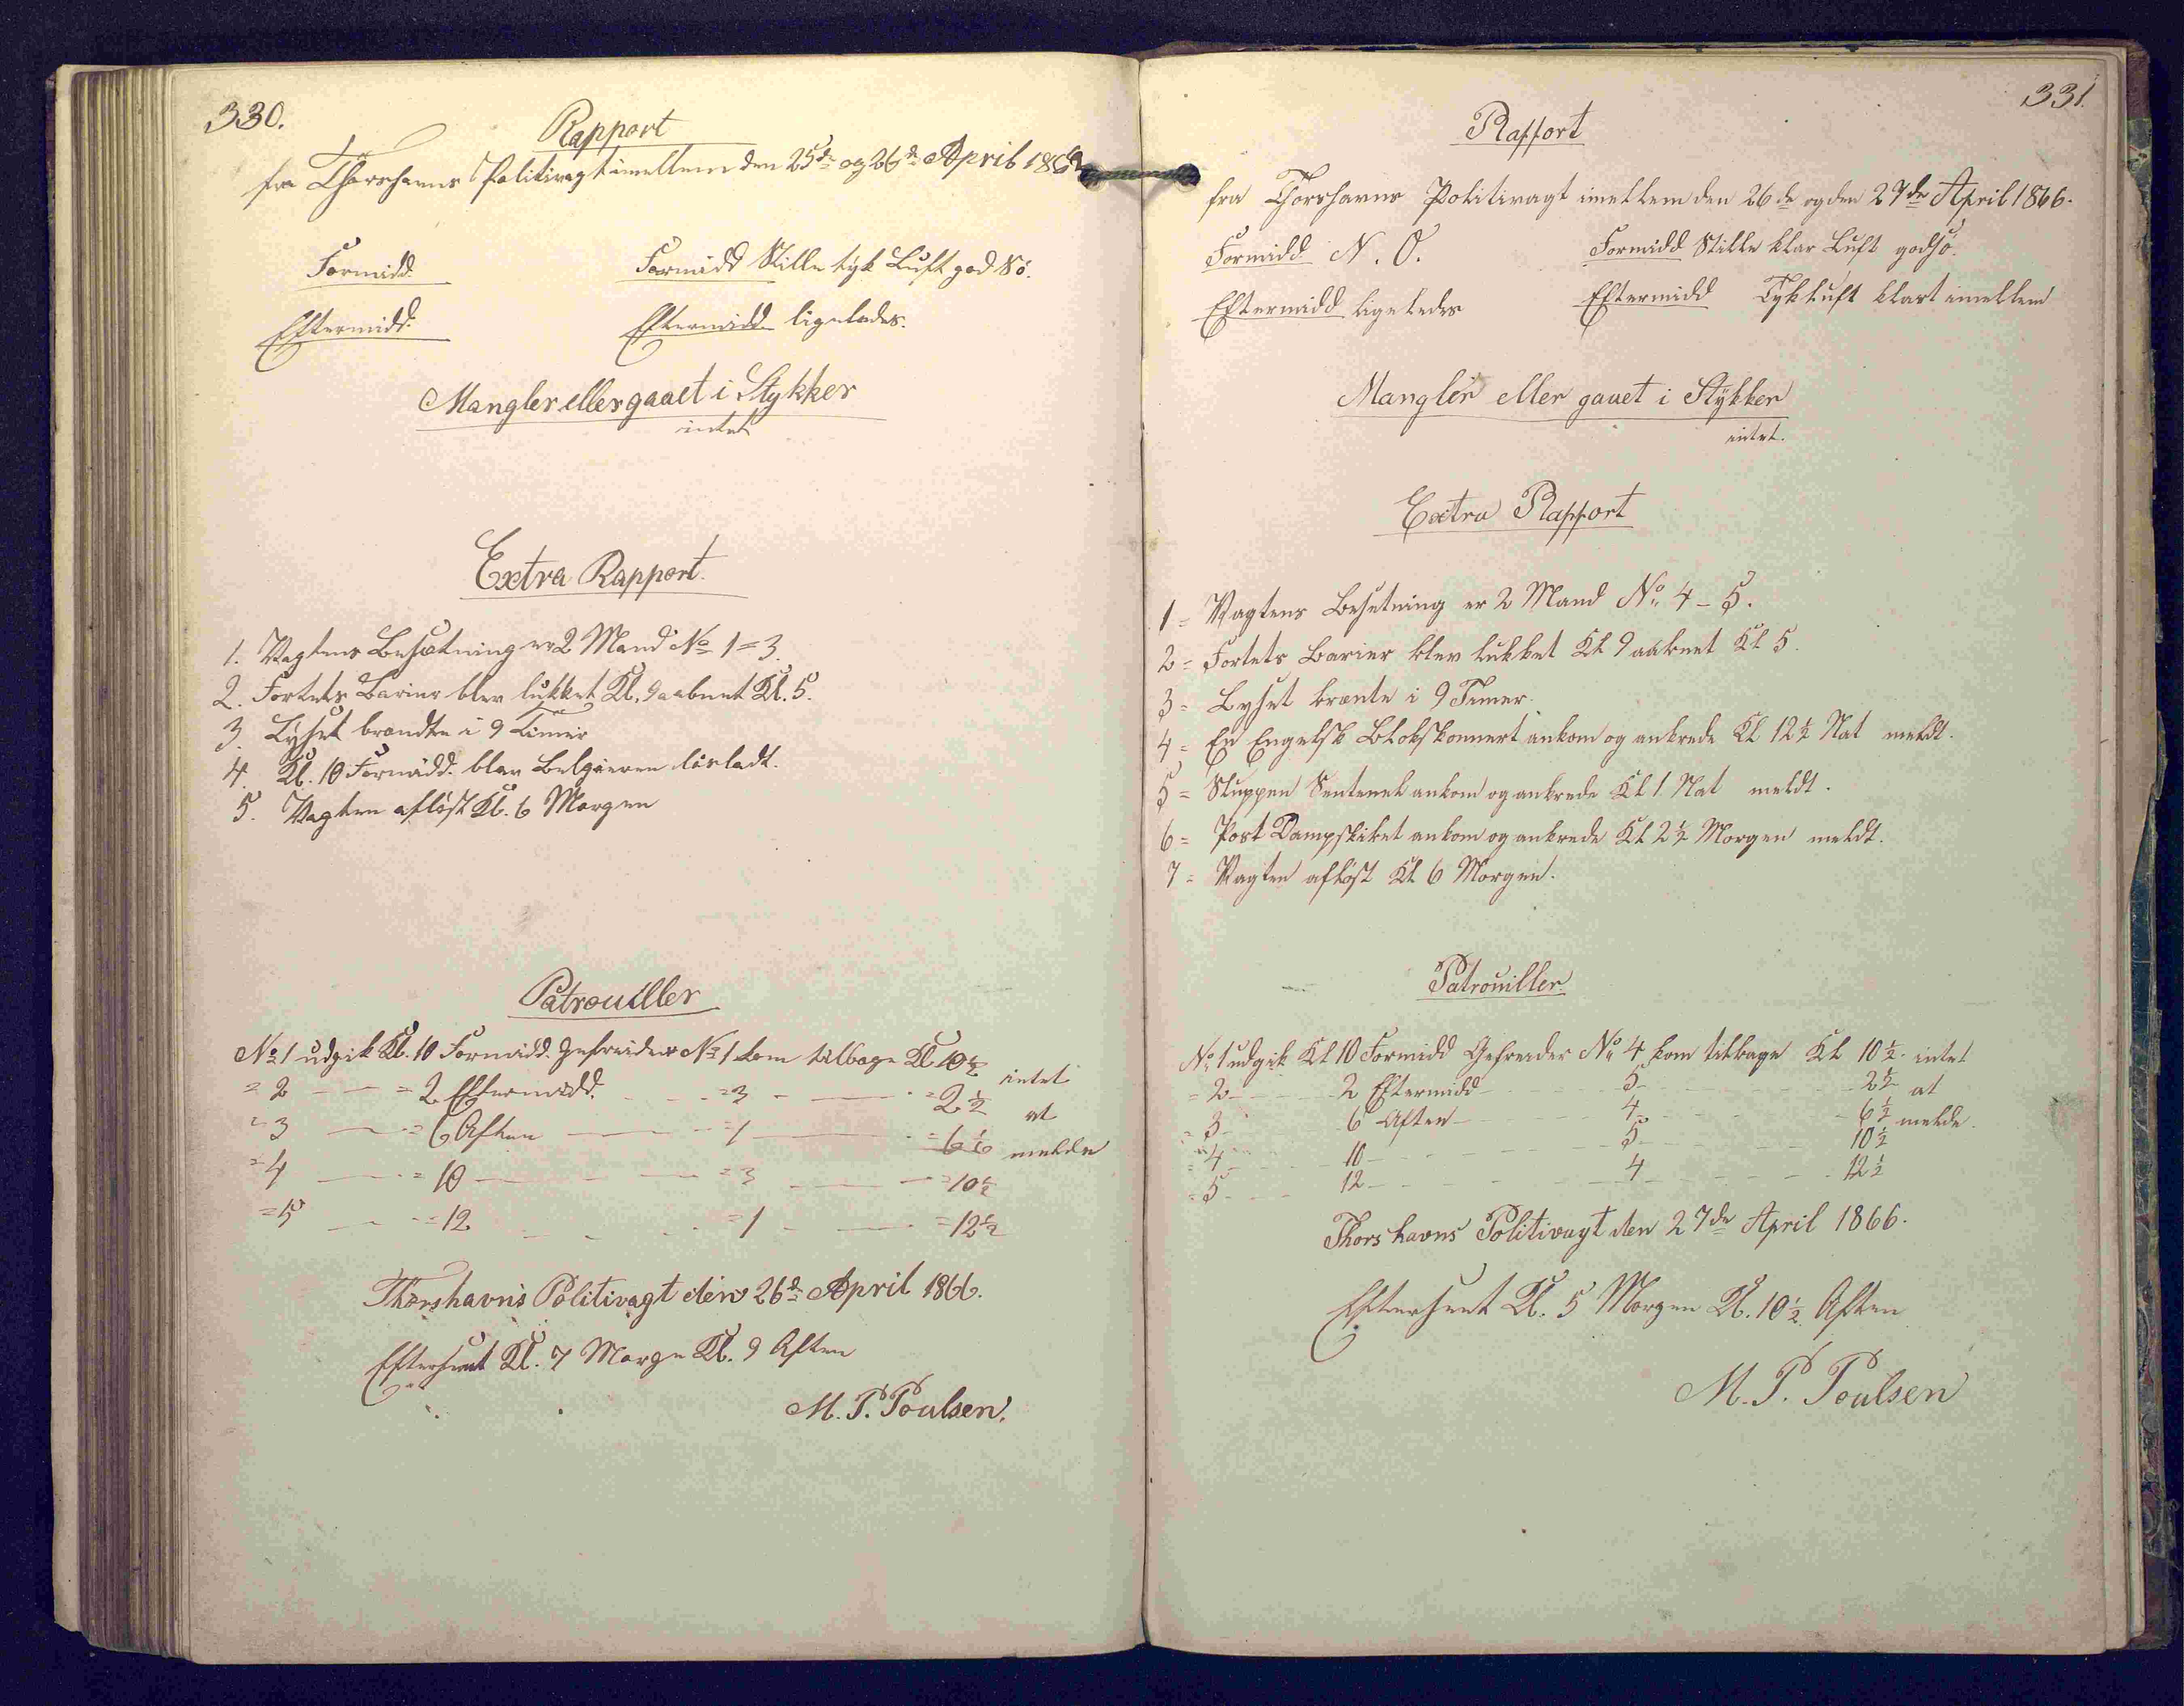 330.
Rapport
fra Thorshavns Politivagt imellem den 25de og 26de April 1866
Formidd. Formidd Stille tyk Luft god Sö.
Eftermidd. Eftermidd ligeledes.
Mangler eller gaaet i Stykker
intet
Extra Rapport.
1. Vagtens Besætning er 2 Mand No 1 = 3.
2. Fortets Barier blev lukket Kl. 9 aabnet Kl. 5.
3. Lyset brændte i 9 Timer
4. Kl. 10 Formidd. blev Belgieren lösladt.
5. Vagten aflöst Kl. 6 Morgen
Patrouiller
No 1 udgik Kl. 10 Formidd. Gefreider No 1 kom tilbage Kl 10½ intet
= 2 — = 2 Eftermidd. — = 3 — = 2½ at
= 3 — = 6 Aften — = 1 — = 6½ melde
= 4 — = 10 — = 3 — = 10½
= 5 — = 12 — = 1 — = 12½
Thorshavns Politivagt den 26de April 1866.
Efterseet Kl. 7 Morgen Kl. 9 Aften
M. P. Poulsen.
331.
Rapport
fra Thorshavns Politivagt imellem den 26de og den 27de April 1866.
Formidd N. O. Formidd Stille klar Luft god Sö.
Eftermidd ligeledes Eftermidd Tyk Luft klart imellem
Mangler eller gaaet i Stykker
intet.
Extra Rapport
1 = Vagtens Besetning er 2 Mand No 4 – 5.
2 = Fortets Barier blev lukket Kl 9 aabnet Kl 5.
3 = Lyset brænte i 9 Timer.
4 = En Engelsk Blokskonnert ankom og ankrede Kl 12½ Nat meldt.
5 = Sluppen Sentenel ankom og ankrede Kl 1 Nat meldt.
6 = Post Dampskibet ankom og ankrede Kl 2½ Morgen meldt.
7 = Vagten aflöst Kl 6 Morgen.
Patrouiller
No 1 udgik Kl 10 Formidd Gefreider No 4 kom tilbage Kl 10½ intet
= 2 — 2 Eftermidd — 5 — 2½ at
= 3 — 6 Aften — 4 — 6½ melde.
= 4 — 10 — 5 — 10½
= 5 — 12 — 4 — 12½
Thorshavns Politivagt den 27de April 1866.
Efterseet Kl. 5 Morgen Kl. 10½ Aften
M. P. Poulsen